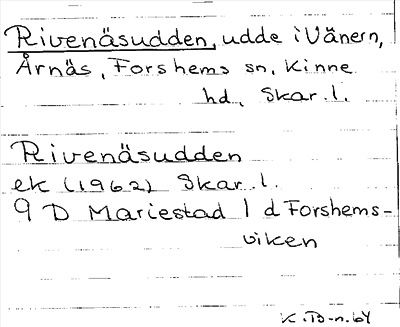 Rivenäsudden, udde i Vänern,
Årnäs, Forshems sn, Kinne
hd, Skar. l.
Rivenäsudden
ek (1962) Skar. l.
9 D Mariestad 1 d Forshems-
viken
K. B-n. 64